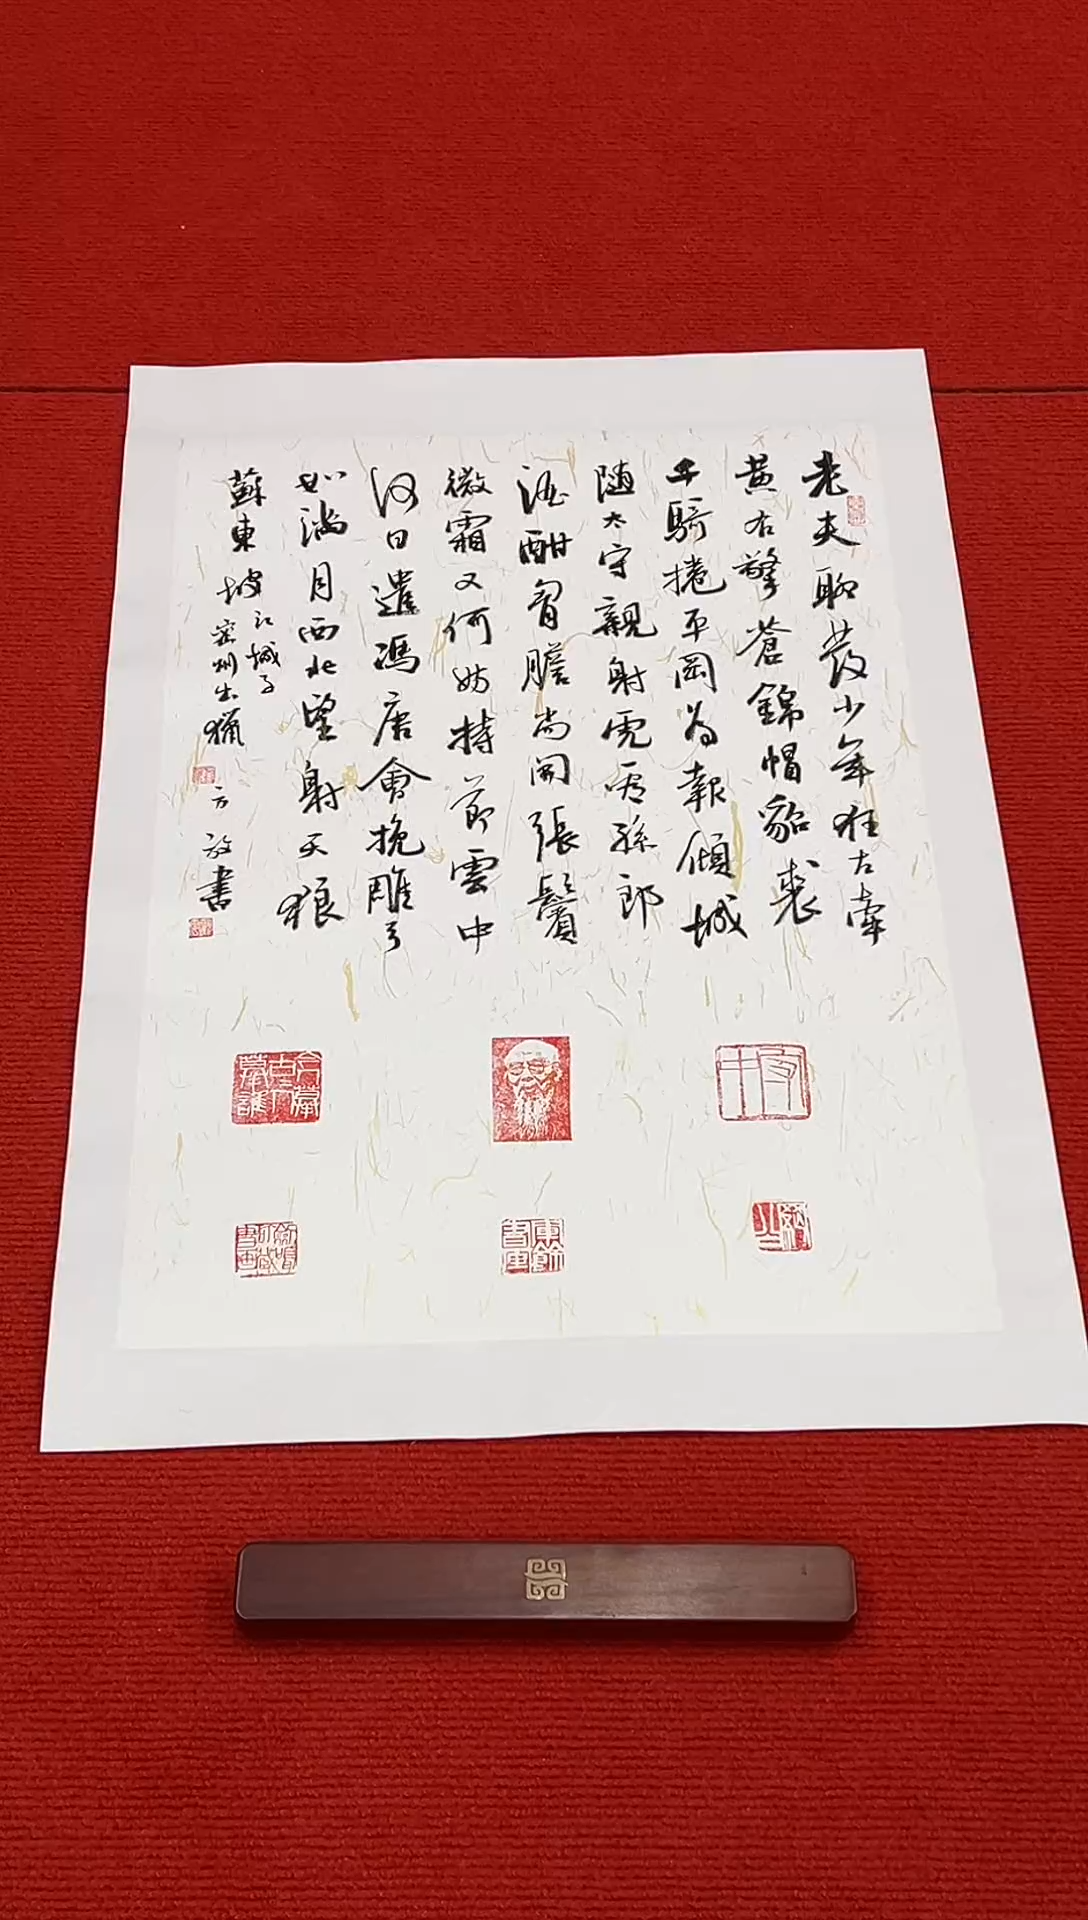 老夫聊發少年狂左牽
黃右擎蒼錦帽貂裘
千騎捲平岡為報傾城
隨太守親射虎看孫郎
酒酣胷膽尚開張鬢
微霜又何妨持節雲中
何日遣馮唐會挽雕弓
如滿月西北望射天狼
蘇東坡江城子
密州出獵
方放書